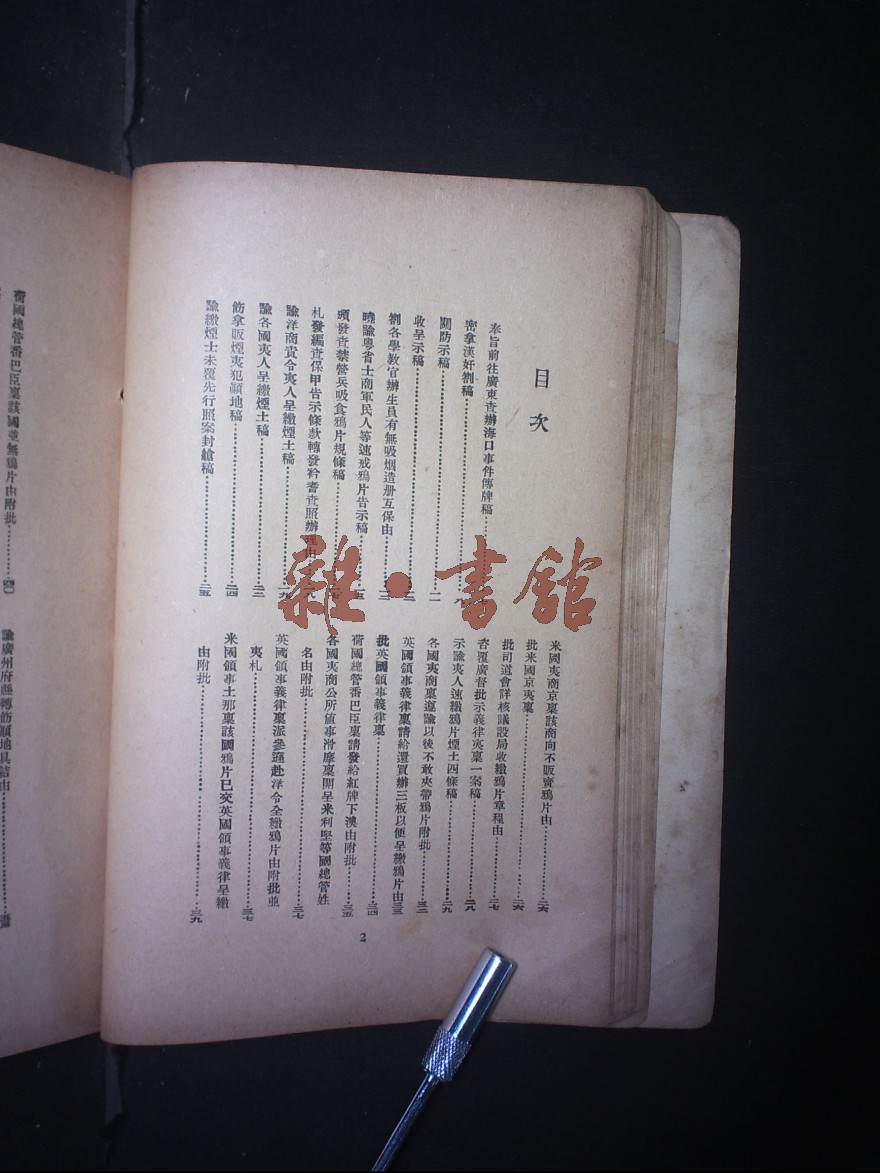 目次
奉旨前往廣東查辦海口事件傳牌稿
密拿漢奸劄稿
關防示稿……一
收呈示稿……二
劄各學教官辦生員有無吸烟造册互保由……三
曉諭粵省士商軍民人等速戒鴉片告示稿
頒發查禁營兵吸食鴉片規條稿
札發編查保甲告示條款轉發衿耆查照辦理由
諭洋商責令夷人呈繳煙土稿
諭各國夷人呈繳煙土稿……二三
飭拿販煙夷犯顛地稿……二四
諭繳煙土未覆先行照案封艙稿……二五
米國夷商京稟該商向不販賣鴉片由……二六
批米國京夷稟……二六
批司道會詳核議設局收繳鴉片章程由……二七
咨覆廣督批示義律夷稟一案稿……二八
示諭夷人速繳鴉片煙土四條稿……二九
各國夷商稟遵諭以後不敢夾帶鴉片附批……三三
英國領事義律稟請給還買辦三板以便呈繳鴉片由三三
批英國領事義律稟……三四
荷國總管番巴臣稟請發給紅牌下澳由附批……三五
各國夷商公所値事滑摩稟開呈米利堅等國總管姓
名由附批……三七
英國領事義律稟派參遜赴洋令全繳鴉片由附批並
夷札……三七
米國領事士那稟該國鴉片已交英國領事義律呈繳
由附批……三九
2
荷國總管番巴臣稟該國並無鴉片由附批……四〇
諭廣州府縣轉飭顛地具結由
雜·書館